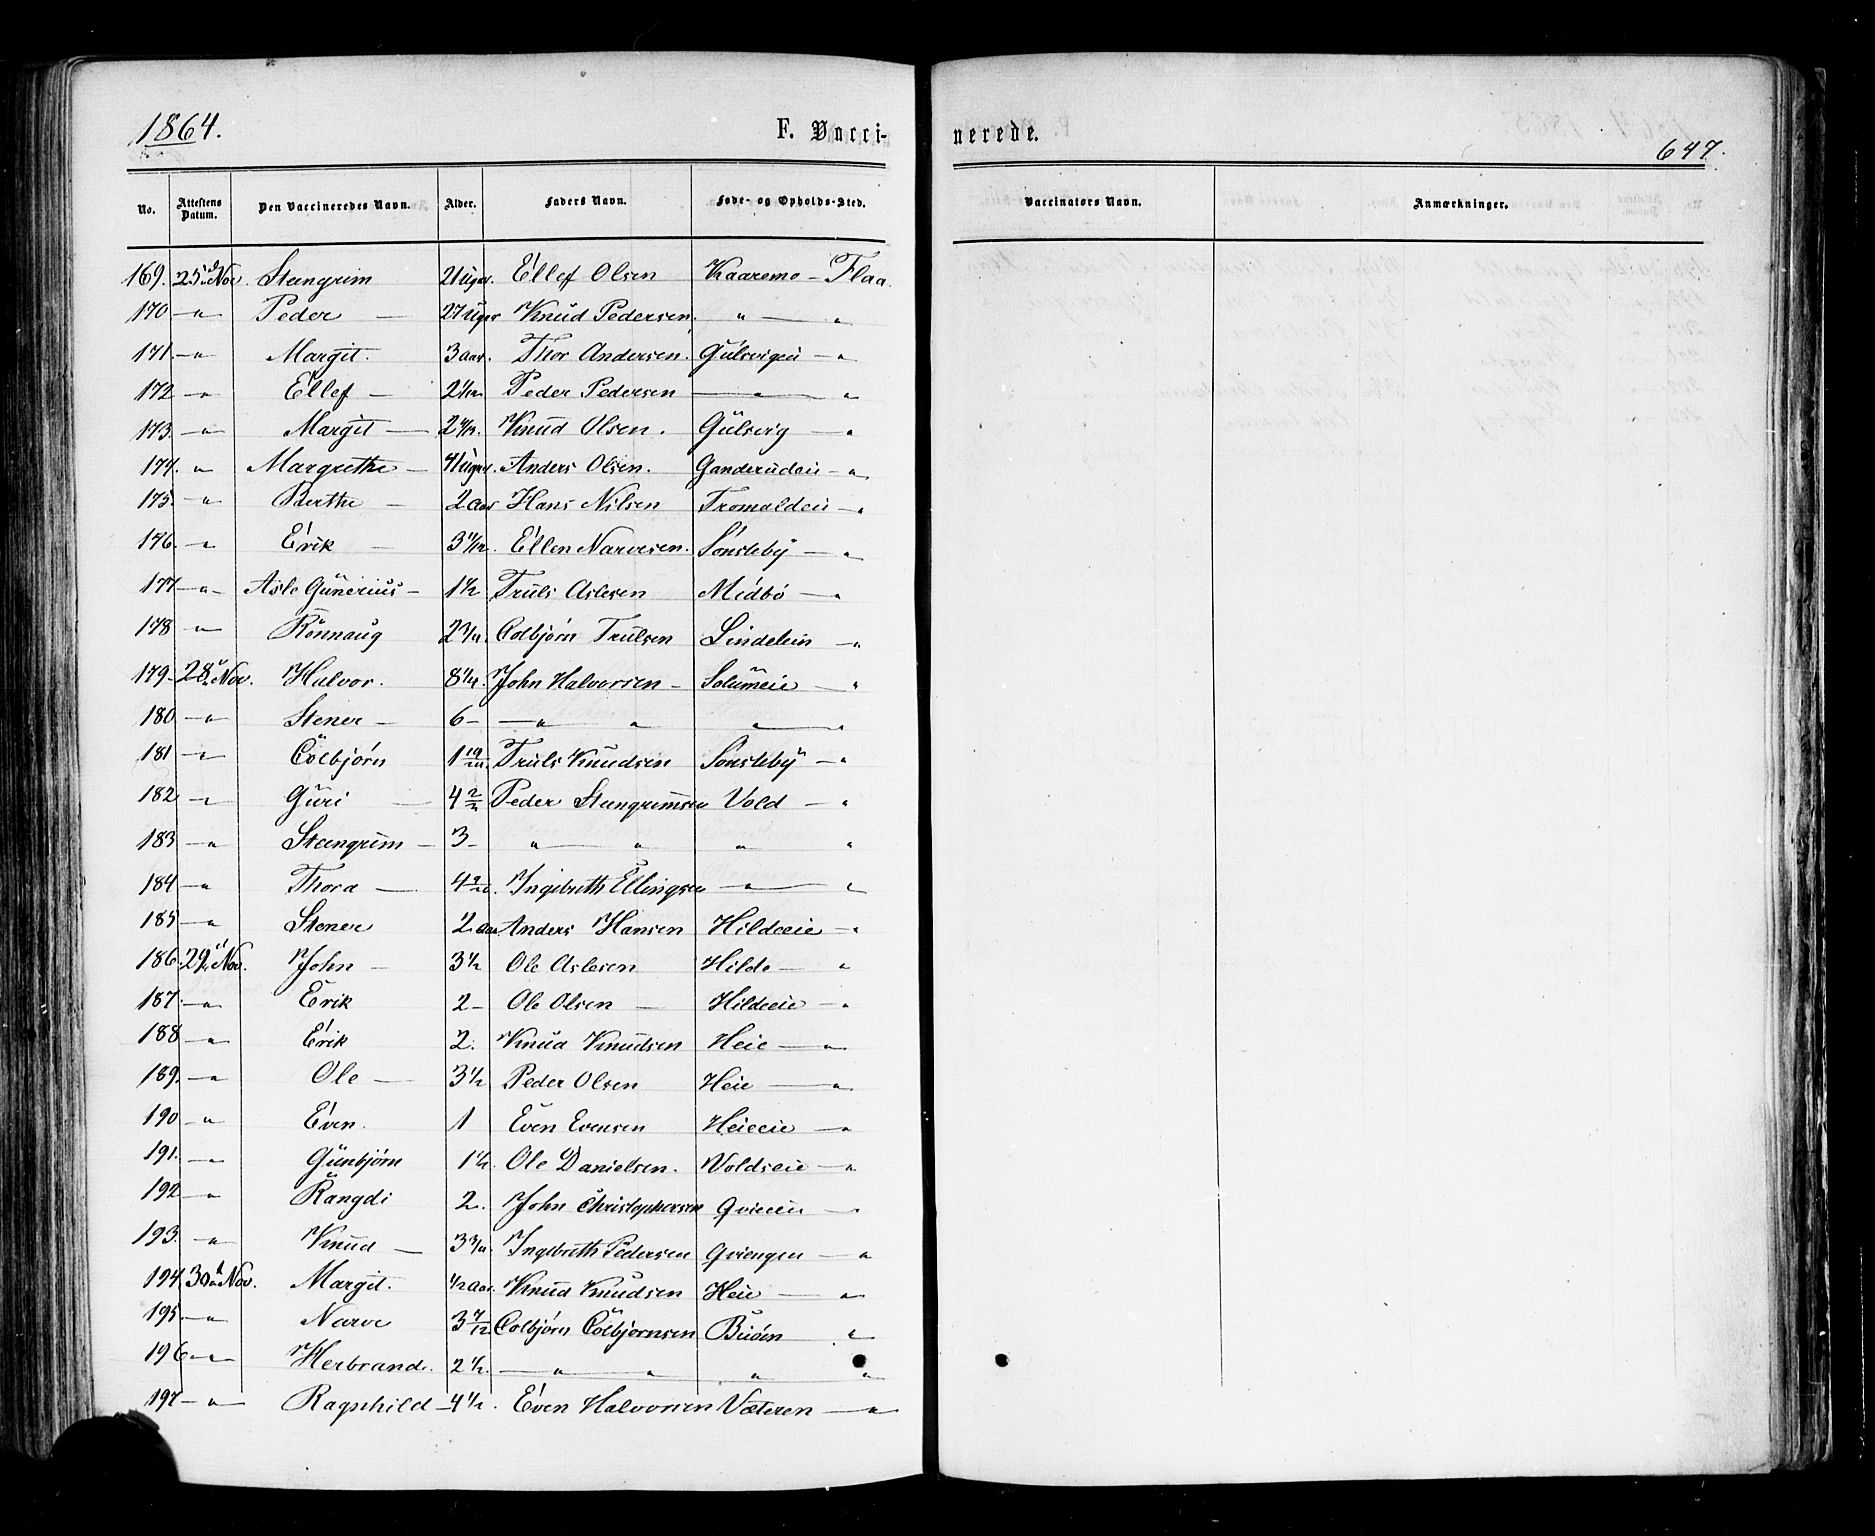 1864. F. Vacci-nerede. 647.
No. Attestens Datum. Den Vaccineredes Navn. Alder. Faders Navn. Føde- og Opholds-Sted. Vaccinators Navn. Anmærkninger.
169. 25 Nov. Steengrim 21 Uger. Ellef Olsen Kaaremo - Flaa.
170 - " Peder - 27 Uger Knud Pedersen. " - "
171. - " Margit. 3 aar. Thor Andersen. Gulsvigeie - "
172 - " Ellef - Peder Pedersen - " - "
173. - " Margit - Knud Olsen. Gulsvig - "
174. " Margrethe - 41 Uger. Anders Olsen. Ganderudeie - "
175. - " Berthe - 2 aar Hans Nilsen Tromaldeie - "
176. - " Erik - Ellen Narvesen. Sønsteby - "
177 - " - Asle Gunerius - 1½ Truls Aslesen Medbø - "
178 - " Rønnaug Colbjørn Trulsen Lindelien - "
179 - 28 Nov. Halvor. 8¼. John Halvorsen - Solumeie - "
180 - " Stener - 6 - - " " " "
181 - " Colbjørn 1 10/12. Truls Knudsen Sønsteby - "
182 - " Guri - Peder Steengrimsen Vold - "
183 - " Steengrim - 3 - " - " " "
184 - " Thora - Ingebreth Ellingsen - " - "
185 - " Stener 2 aar Anders Hansen Hildeeie - "
186. 29 Nov. John - 3½ Ole Aslesen Hilde - "
187. - " Erik 2 - Ole Olsen - Hildeeie - "
188 - " Erik 2. Knud Knudsen Heie - "
189. - " Ole - 3½ Peder Olsen Heie - "
190 - " Even. 1 Even Evensen Heieeie - "
191. - " Gunbjørn 1½. Ole Danielsen. Voldseie - "
192 - " Rangdi 2. John Christophersen Gvieeie - "
193. - " Knud - Ingebreth Pedersen Gviengen - "
194. 30 Nov. Margit. ½ aar. Knud Knudsen Heie - "
195 - " Narve 3 7/12 Colbjørn Colbjørnsen Buøen "
196 - " Herbrand. 2½. - " " " "
197 - " Ragnhild - 4½. Even Halvorsen Væteren - "